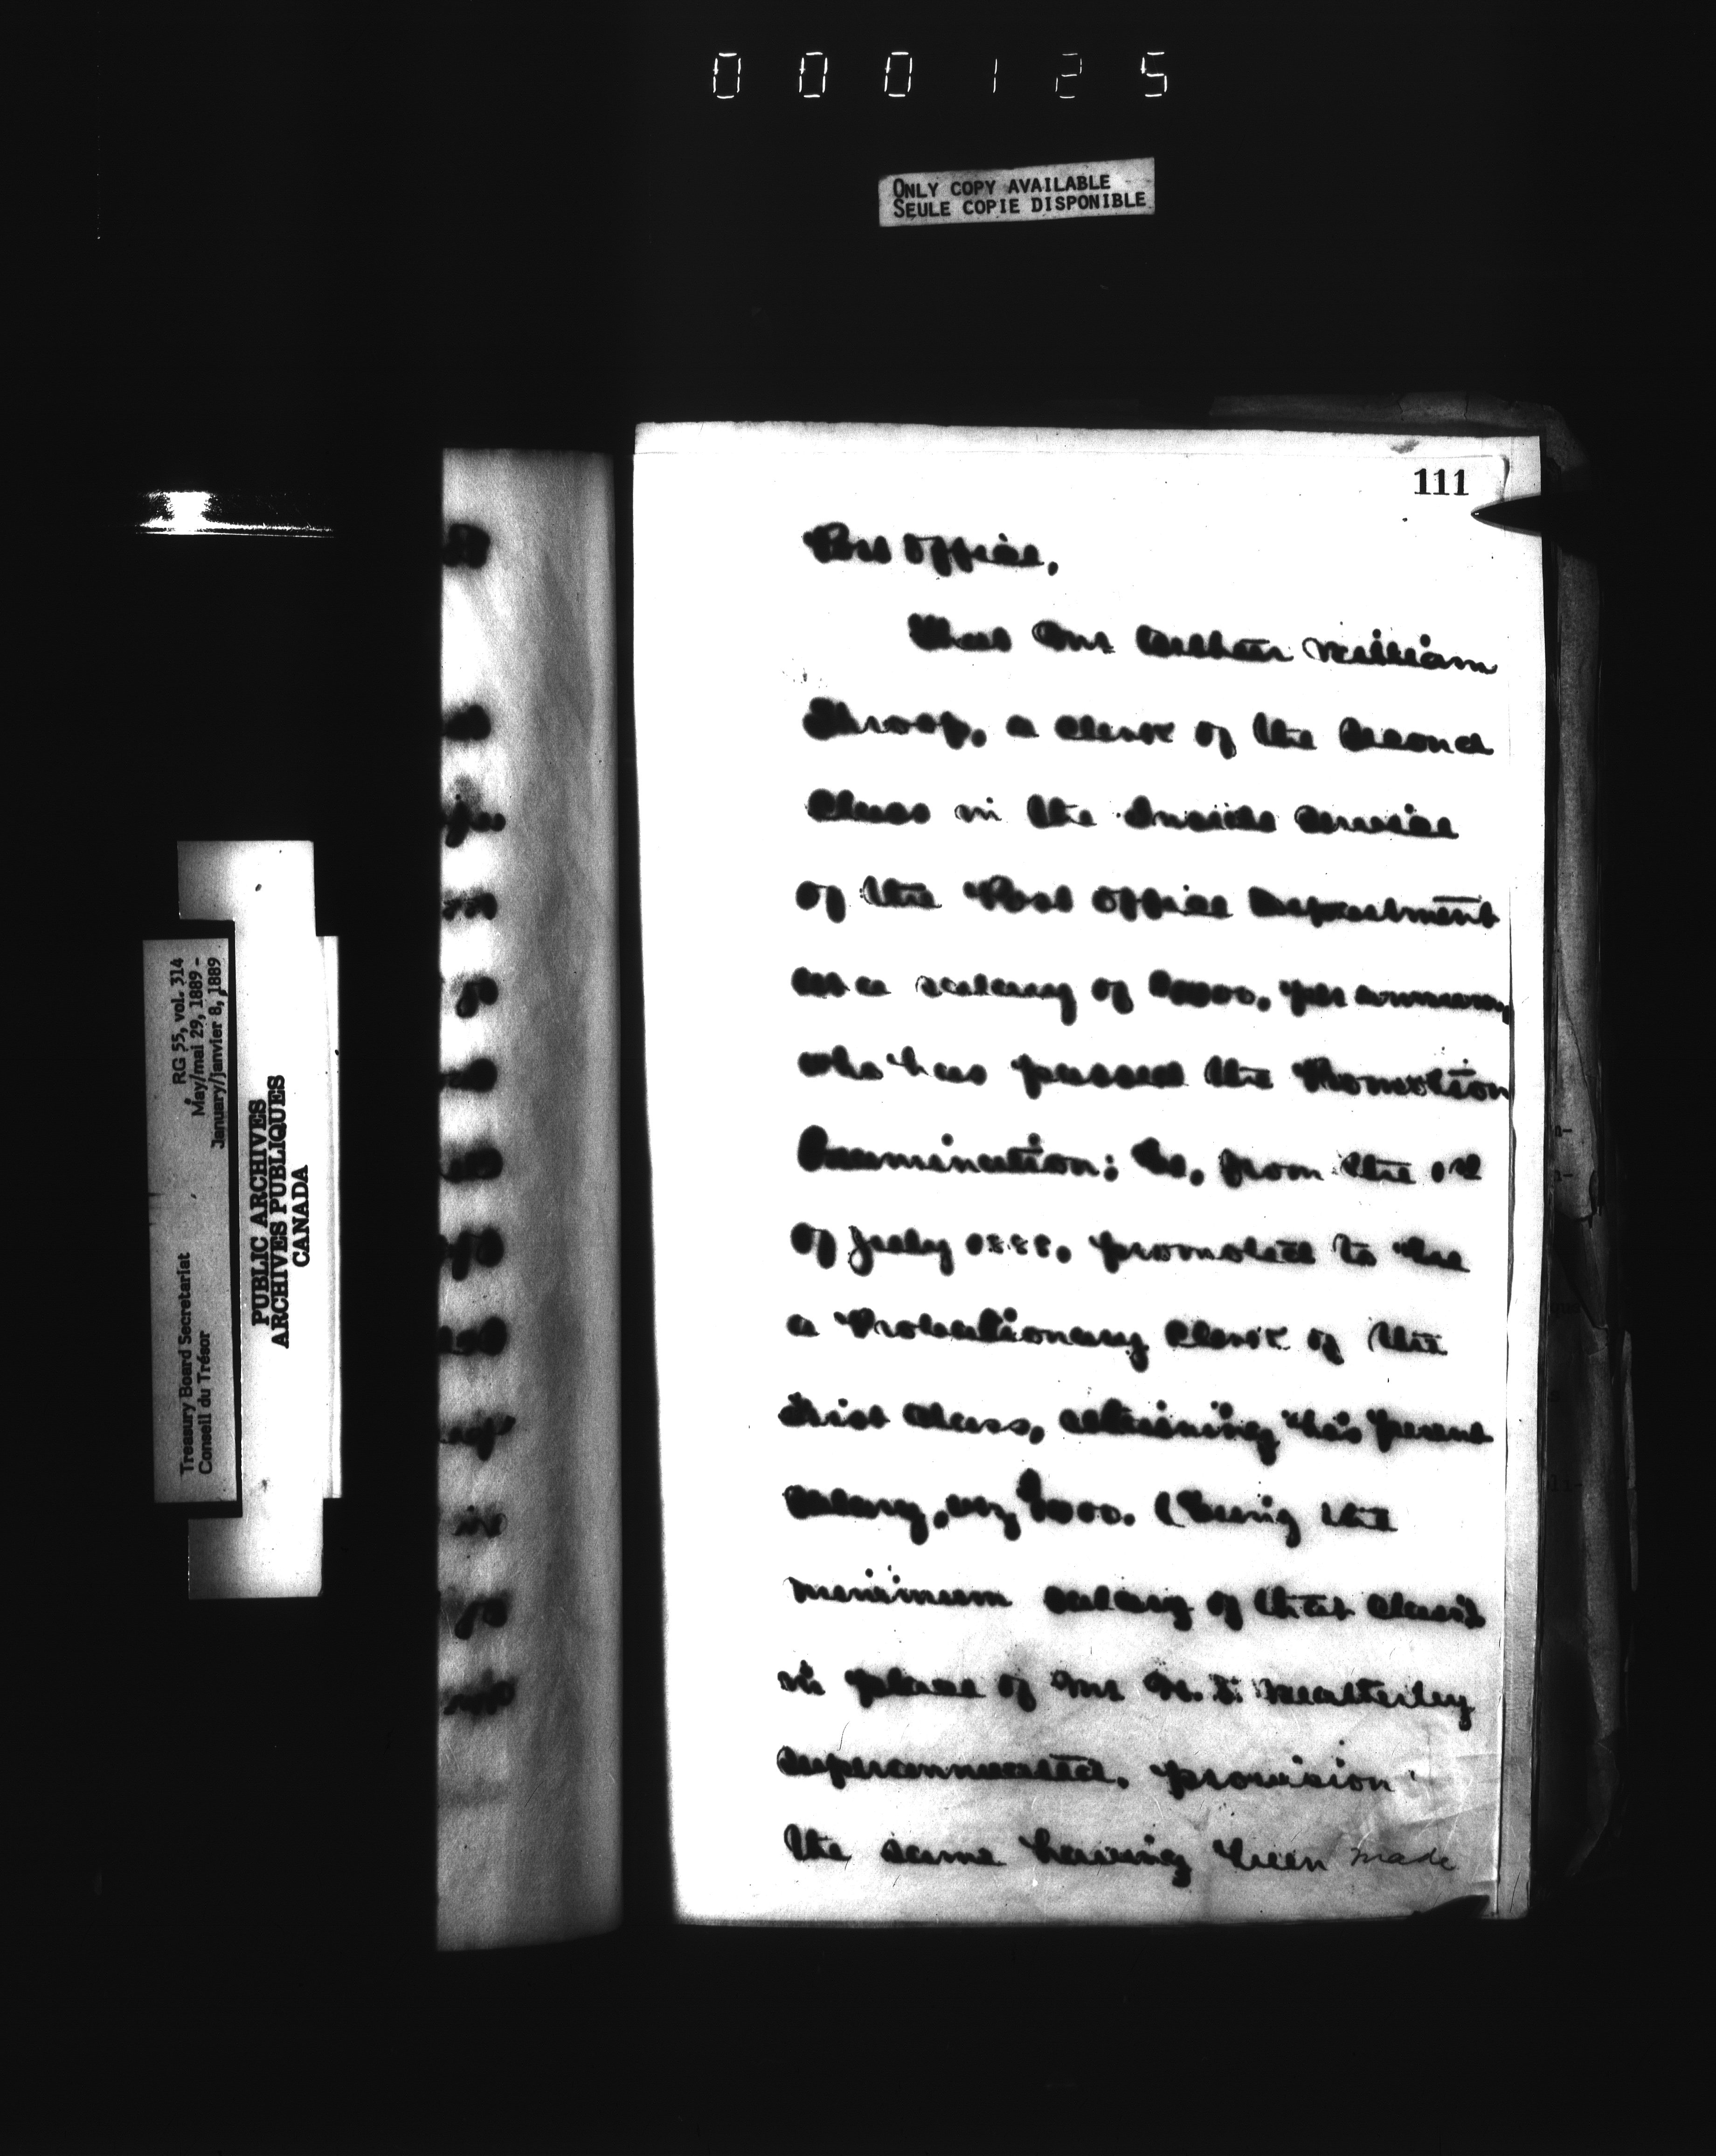 000125
ONLY COPY AVAILABLE
SEULE COPIE DISPONIBLE
111
Post Office,
That Mr William
Throop, a clerk of the Second
Class in the Inside Service
of the Post Office Department
at a salary of per annum,
who has passed the Promotion
Examination: be, from the 1st
of July 1888. promoted to be
a Probationary Clerk of the
First Class, his present
salary, (being the
minimum salary of that class)
in place of Mr
superannuated. provision
the same having been made
Treasury Board Secretariat
Conseil du Trésor
RG 55, vol. 314
May/mai 29, 1889 -
January/janvier 8, 1889
PUBLIC ARCHIVES
ARCHIVES PUBLIQUES
CANADA